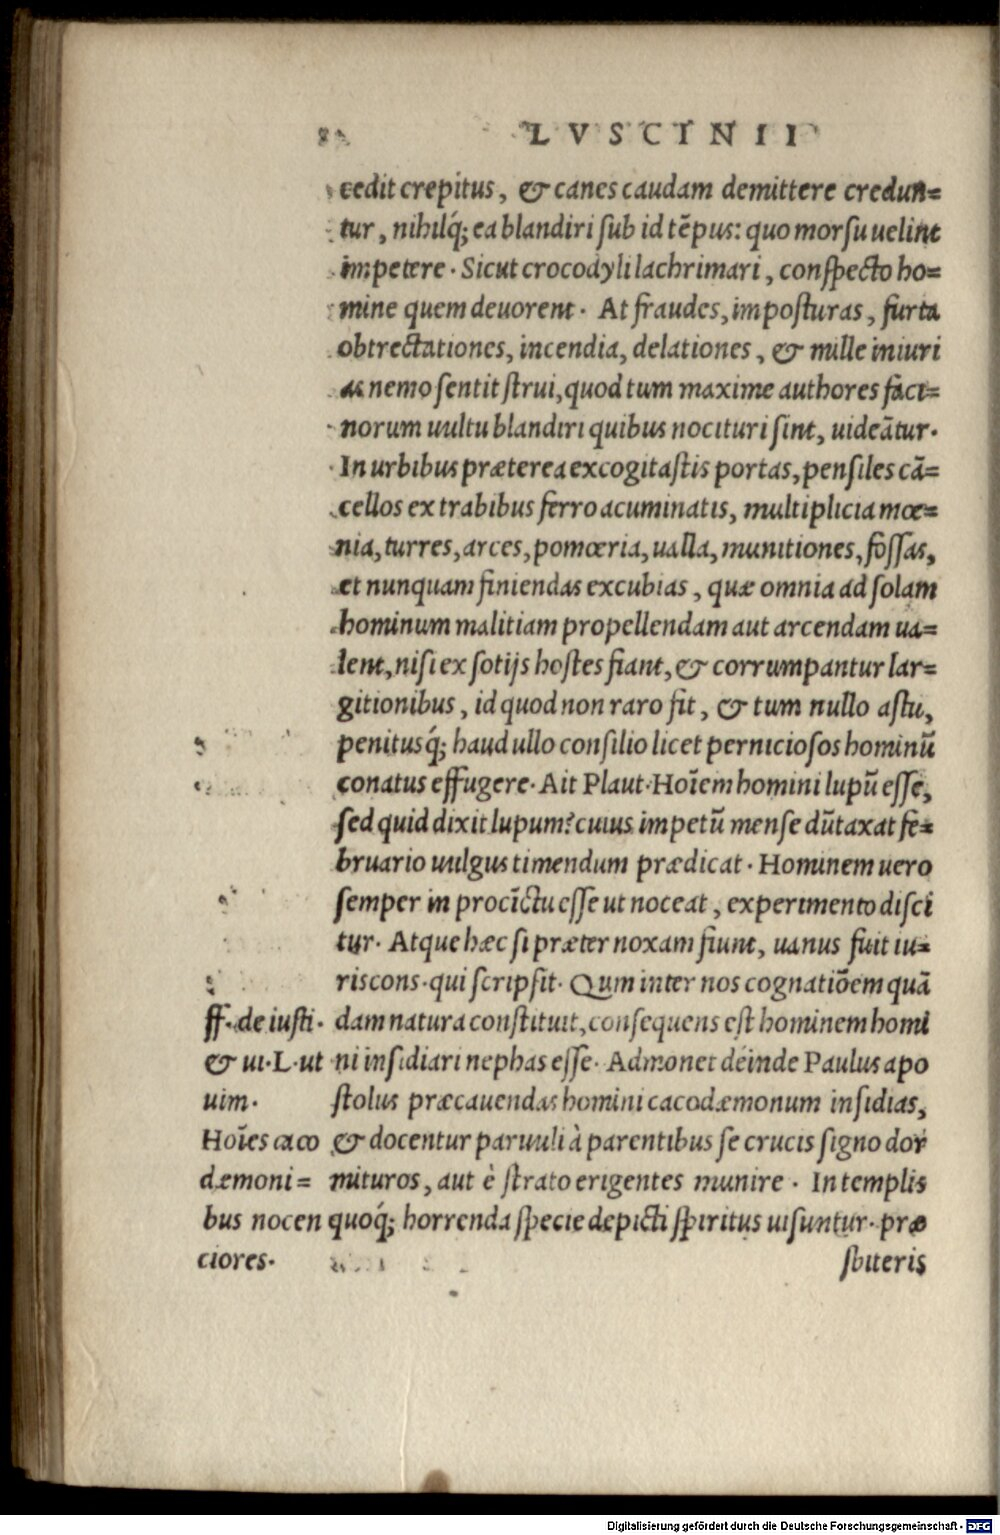 LVSCINII
cedit crepitus, & canes caudam demittere credun=
tur, nihilq́; ea blandiri sub id tēpus: quo morsu uelint
impetere. Sicut crocodyli lachrimari, conspecto ho=
mine quem deuorent. At fraudes, imposturas, furta
obtrectationes, incendia, delationes, & mille iniuri
as nemo sentit strui, quod tum maxime authores faci=
norum uultu blandiri quibus nocituri sint, uideātur.
In urbibus præterea excogitastis portas, pensiles cā=
cellos ex trabibus ferro acuminatis, multiplicia mœ=
nia, turres, arces, pomœria, ualla, munitiones, fossas,
et nunquam finiendas excubias, quæ omnia ad solam
hominum malitiam propellendam aut arcendam ua=
lent, nisi ex sotijs hostes fiant, & corrumpantur lar=
gitionibus, id quod non raro fit, & tum nullo astu,
penitusq́; haud ullo consilio licet perniciosos hominū
conatus effugere. Ait Plaut. Hoīem homini lupū esse,
sed quid dixit lupum? cuius impetū mense dūtaxat fe=
bruario uulgus timendum prædicat. Hominem uero
semper in procīctu esse ut noceat, experimento disci
tur. Atque hæc si præter noxam fiunt, uanus fuit iu=
riscons. qui scripsit. Qum inter nos cognatiōem quā
ff. de iusti. dam natura constituit, consequens est hominem homi
& ui. L. ut ni insidiari nephas esse. Admonet déinde Paulus apo
uim. stolus præcauendas homini cacodæmonum insidias,
Hoīes caco & docentur paruuli à parentibus se crucis signo dor
dæmoni= mituros, aut è strato erigentes munire. In templis
bus nocen quoq́; horrenda specie depicti spiritus uisuntur. præ
ciores. sbiteris
Digitalisierung gefördert durch die Deutsche Forschungsgemeinschaft - DFG